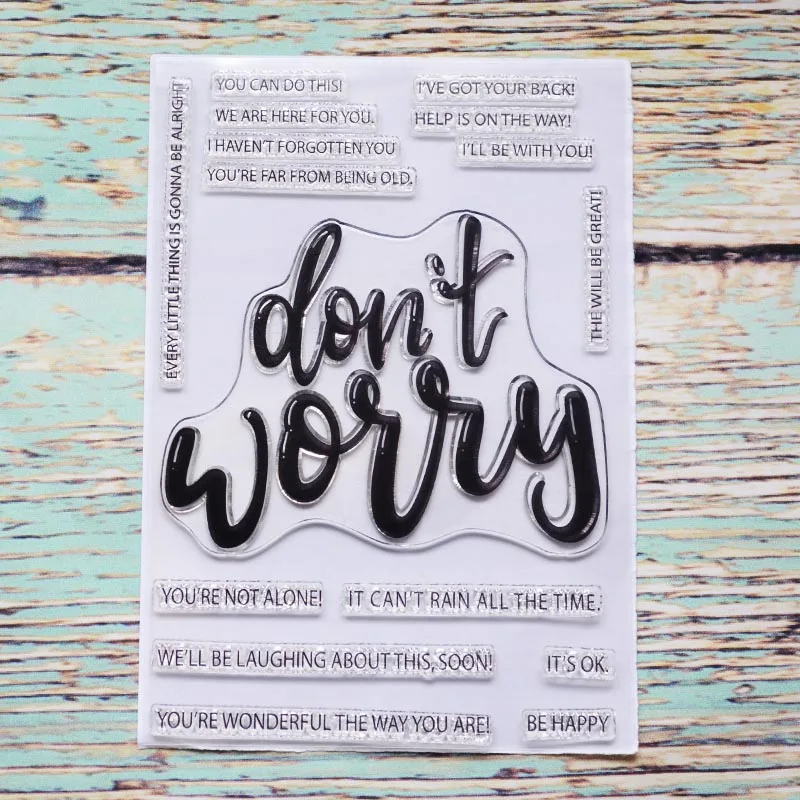 YOU CAN DO THIS!
I'VE GOT YOUR BACK!
WE ARE HERE FOR YOU.
HELP IS ON THE WAY!
I HAVEN'T FORGOTTEN YOU
I'LL BE WITH YOU!
YOU'RE FAR FROM BEING OLD.
EVERY LITTLE THING IS GONNA BE ALRIGHT
THE WILL BE GREAT!
don't
worry
YOU'RE NOT ALONE!
IT CAN'T RAIN ALL THE TIME.
WE'LL BE LAUGHING ABOUT THIS, SOON!
IT'S OK.
YOU'RE WONDERFUL THE WAY YOU ARE!
BE HAPPY